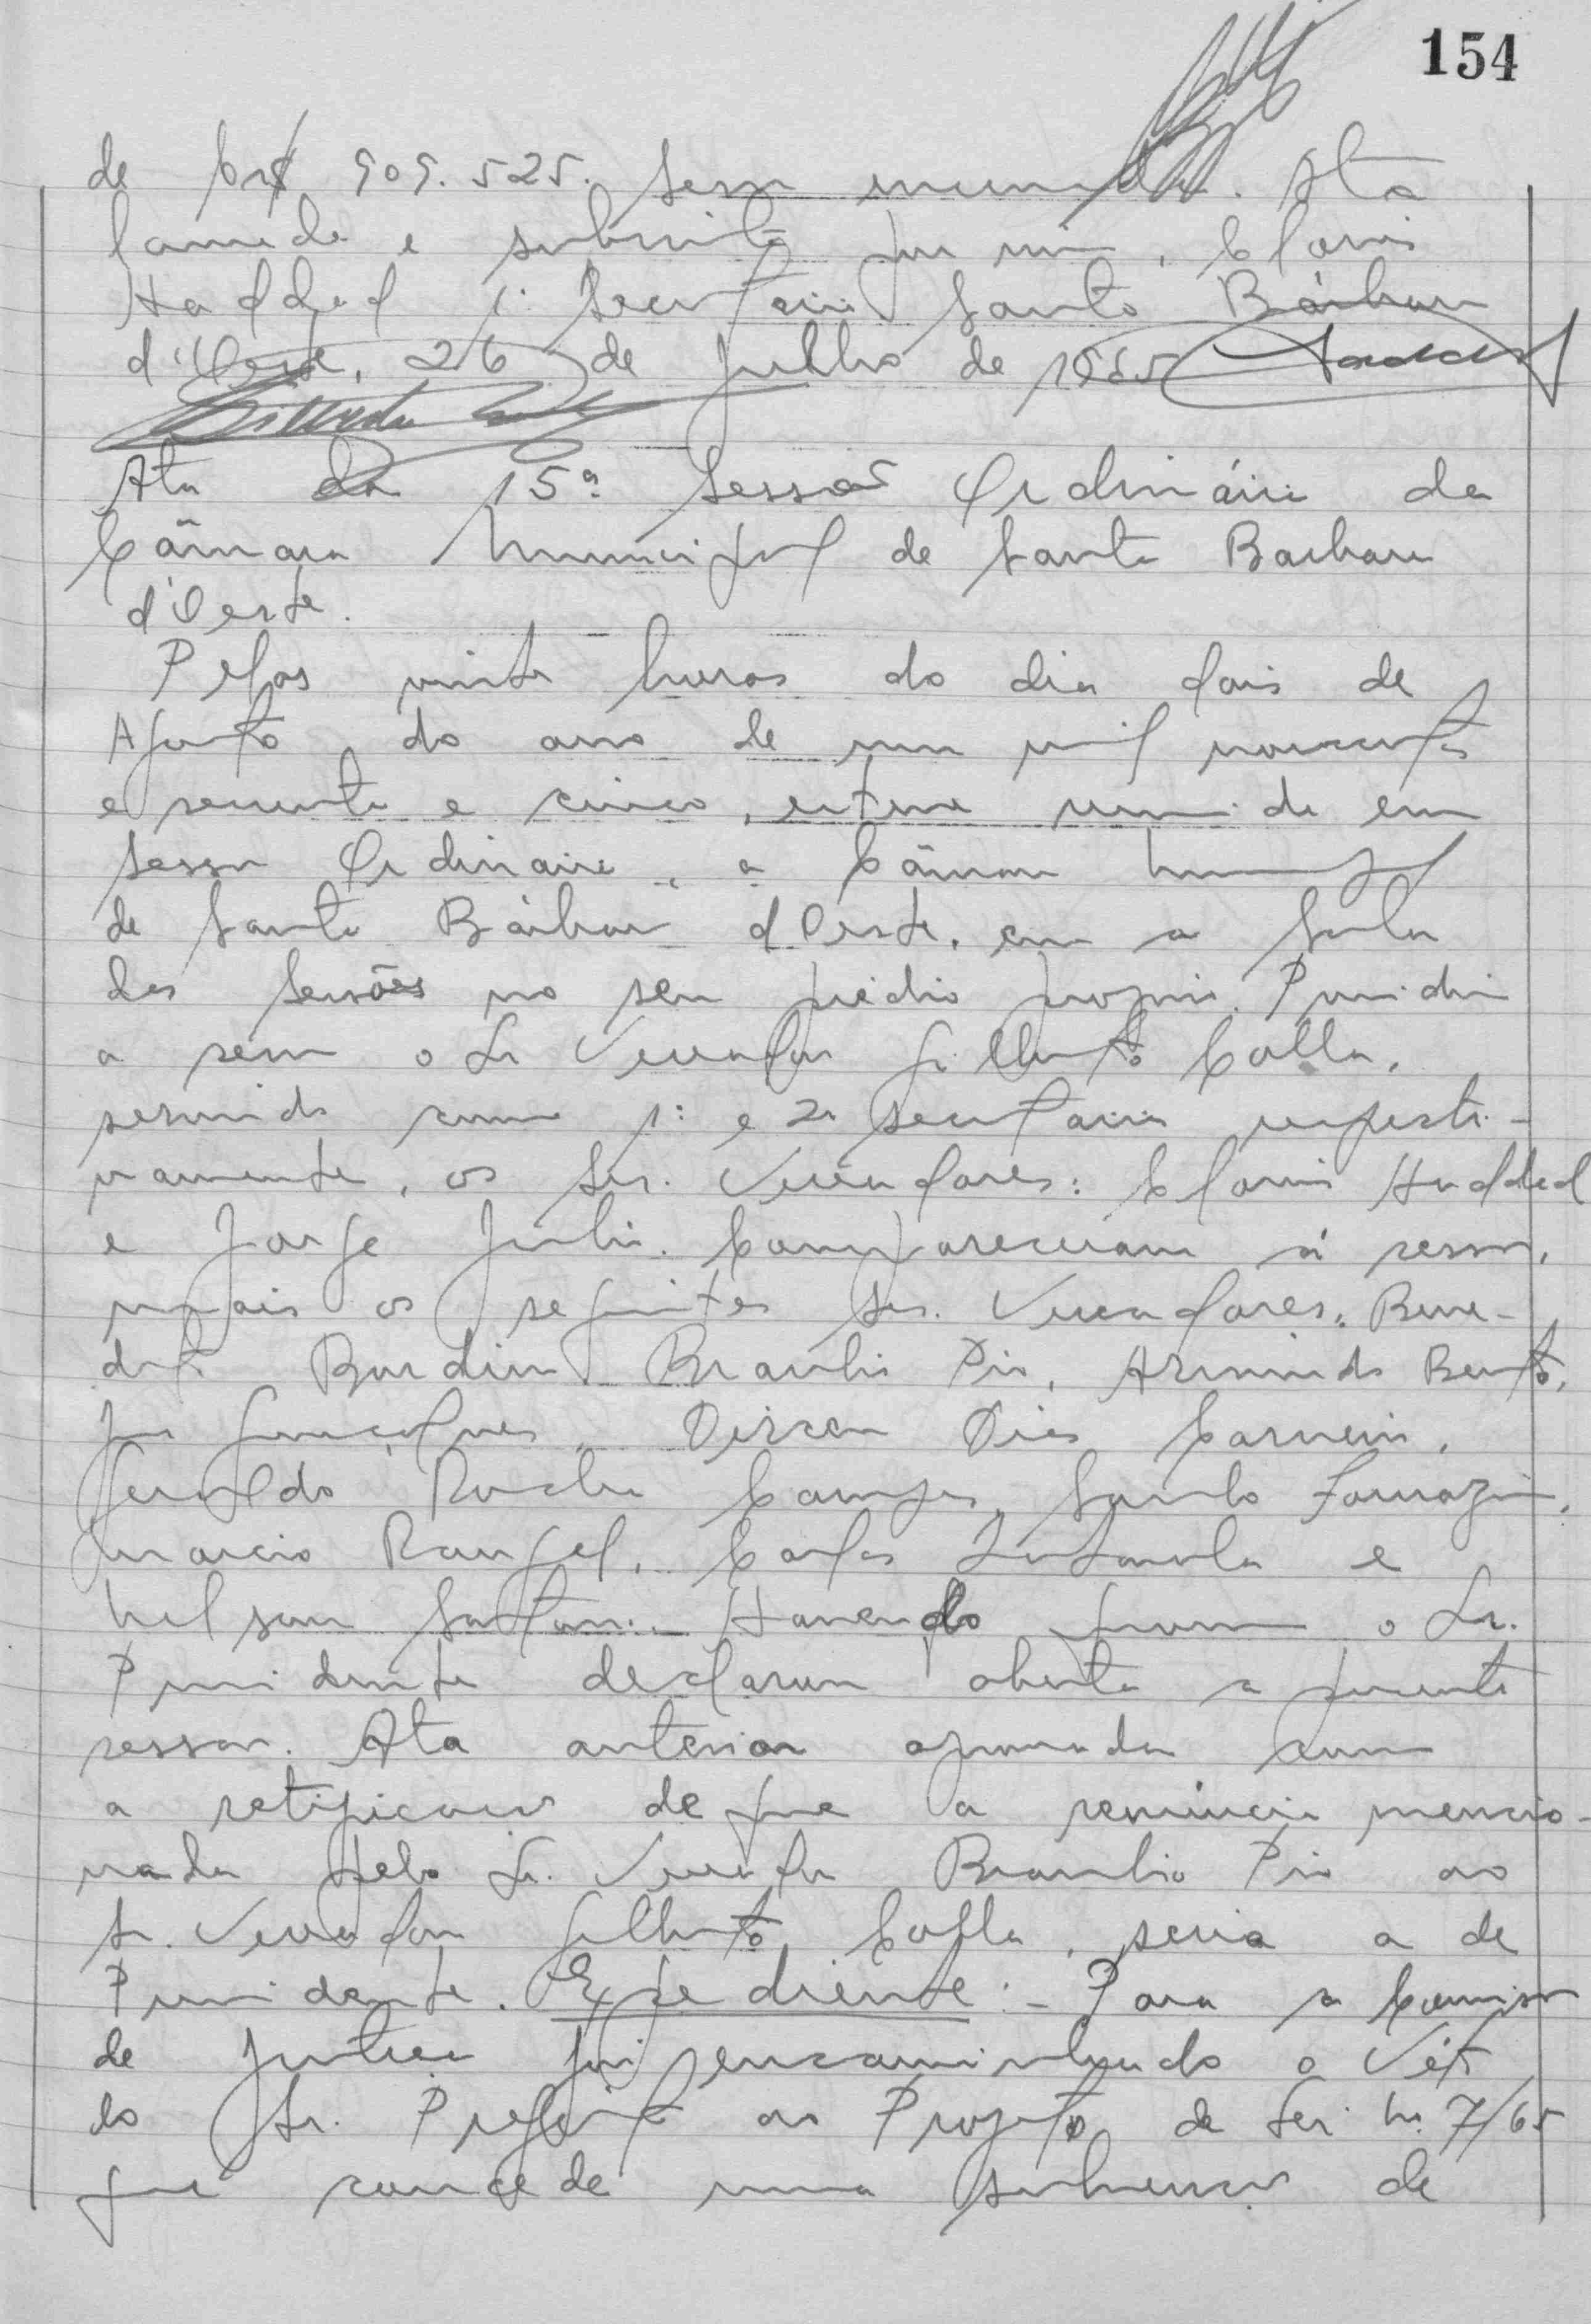 154
de Cr$ 909.525. Sem emenda. Ata
lavrada e subscrita por mim, Clovis
Haddad 1º Secretario Santa Bárbara
d'Oeste, 26 de Julho de 1965
Ata da 15ª Sessão Ordinária da
Câmara Municipal de Santa Barbara
d'Oeste.
Pelas vinte horas do dia dois de
Agosto do ano de mum mil novecentos
e sessenta e cinco, esteve reunida em
Sessão Ordinaria, a Câmara Municipal
de Santa Bárbara d'Oeste, em a Sala
das Sessões no seu prédio proprio. Presidiu
a sessão o Sr Vereador Gilberto Colla,
servindo como 1º e 2º secretarios respecti-
vamente, os Srs. Vereadores: Clovis Haddad
e Jorge Julio. Compareceram á sessão,
mais os seguintes Srs. Vereadores: Bene-
dito Bordim Braulio Pio, Armindo Bento,
Gonçalves, Dirceu Dias Carneiro,
Geraldo Rocha Campos, Santo Fornazin,
Marcio Rangel, Carlos e
Nelson Santan. Havendo numero o Sr.
Presidente declarou aberta a presente
sessão. Ata anterior aprovada com
a retificação de que a renúncia mencio-
nada pelo Sr. Vereador Braulio Pio ao
Sr. Vereador Gilberto Colla, seria a de
Presidente. Expediente:- Para a Comissão
de Justiça foi encaminhado o Véto
do Sr. Prefeito ao Projeto de Lei n. 7/65
que concede uma subvenção de